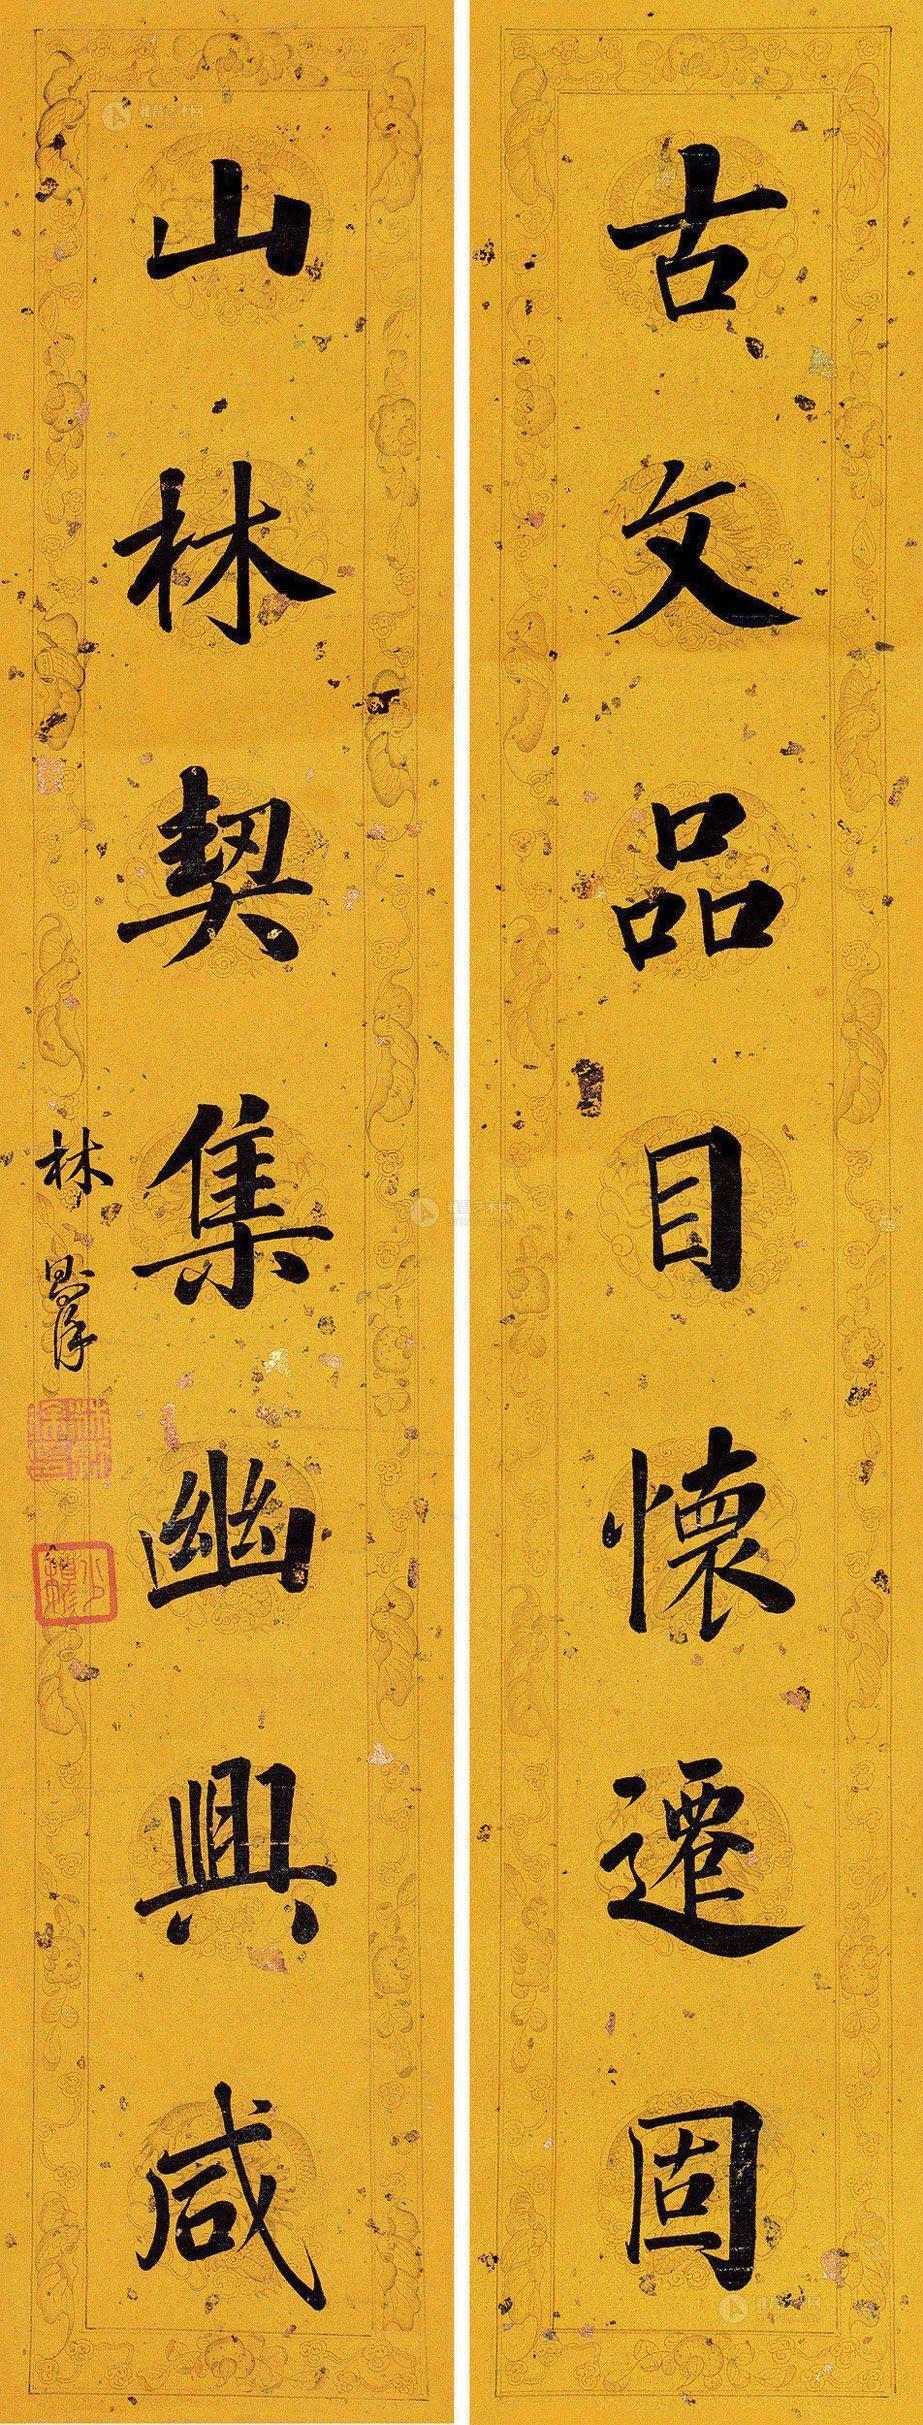 古文品目懷遷固
山林契集幽興咸
林則徐